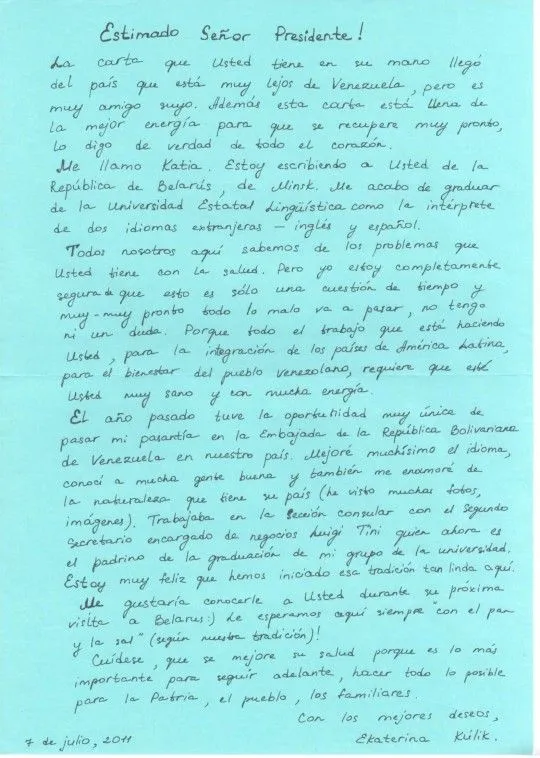 Estimado Señor Presidente!
La carta que Usted tiene en su mano llegó
del país que está muy lejos de Venezuela, pero es
muy amigo suyo. Además esta carta está llena de
la mejor energía para que se recupere muy pronto,
Lo digo de verdad de todo el corazón.
Me llamo Katia. Estoy escribiendo a Usted de la
República de Belarús, de Minsk. Me acabo de graduar
de la Universidad Estatal Lingüística como la intérprete
de dos idiomas extranjeras – inglés y español.
Todos nosotros aquí sabemos de los problemas que
Usted tiene con la salud. Pero yo estoy completamente
segura de que esto es sólo una cuestión de tiempo y
muy-muy pronto todo lo malo va a pasar, no tengo
ni un duda. Porque todo el trabajo que está haciendo
Usted, para la integración de los países de América Latina,
para el bienestar del pueblo venezolano, requiere que esté
Usted muy sano y con mucha energía.
El año pasado tuve la oportunidad muy única de
pasar mi pasantía en la Embajada de la República Bolivariana
de Venezuela en nuestro país. Mejoré muchísimo el idioma,
conocí a mucha gente buena y también me enamoré de
la naturaleza que tiene su país (he visto muchas fotos,
imágenes). Trabajaba en la Sección consular con el Segundo
Secretario encargado de negocios Luigi Tini quien ahora es
el padrino de la graduación de mi grupo de la universidad.
Estoy muy feliz que hemos iniciado esa tradición tan linda aquí.
Me gustaría conocerle a Usted durante su próxima
visita a Belarus:) Le esperamos aquí siempre "con el pan
y la sal" (según nuestra tradición)!
Cuídese, que se mejore su salud porque es lo más
importante para seguir adelante, hacer todo lo posible
para la Patria, el pueblo, los familiares.
Con los mejores deseos,
7 de julio, 2011 Ekaterina Kúlik.